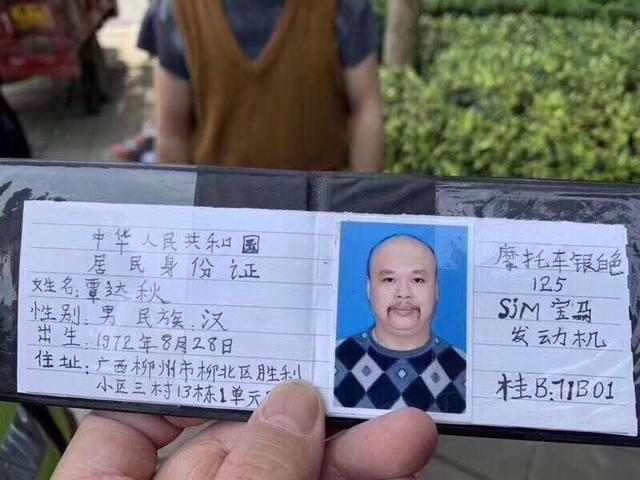 中华人民共和国
居民身份证
姓名:覃达秋
性别:男 民族:汉
出生:1972年8月28日
住址:广西柳州市柳北区胜利
小区三村13栋1单元
摩托车银色
125
SjM宝马
发动机
桂B:71B01